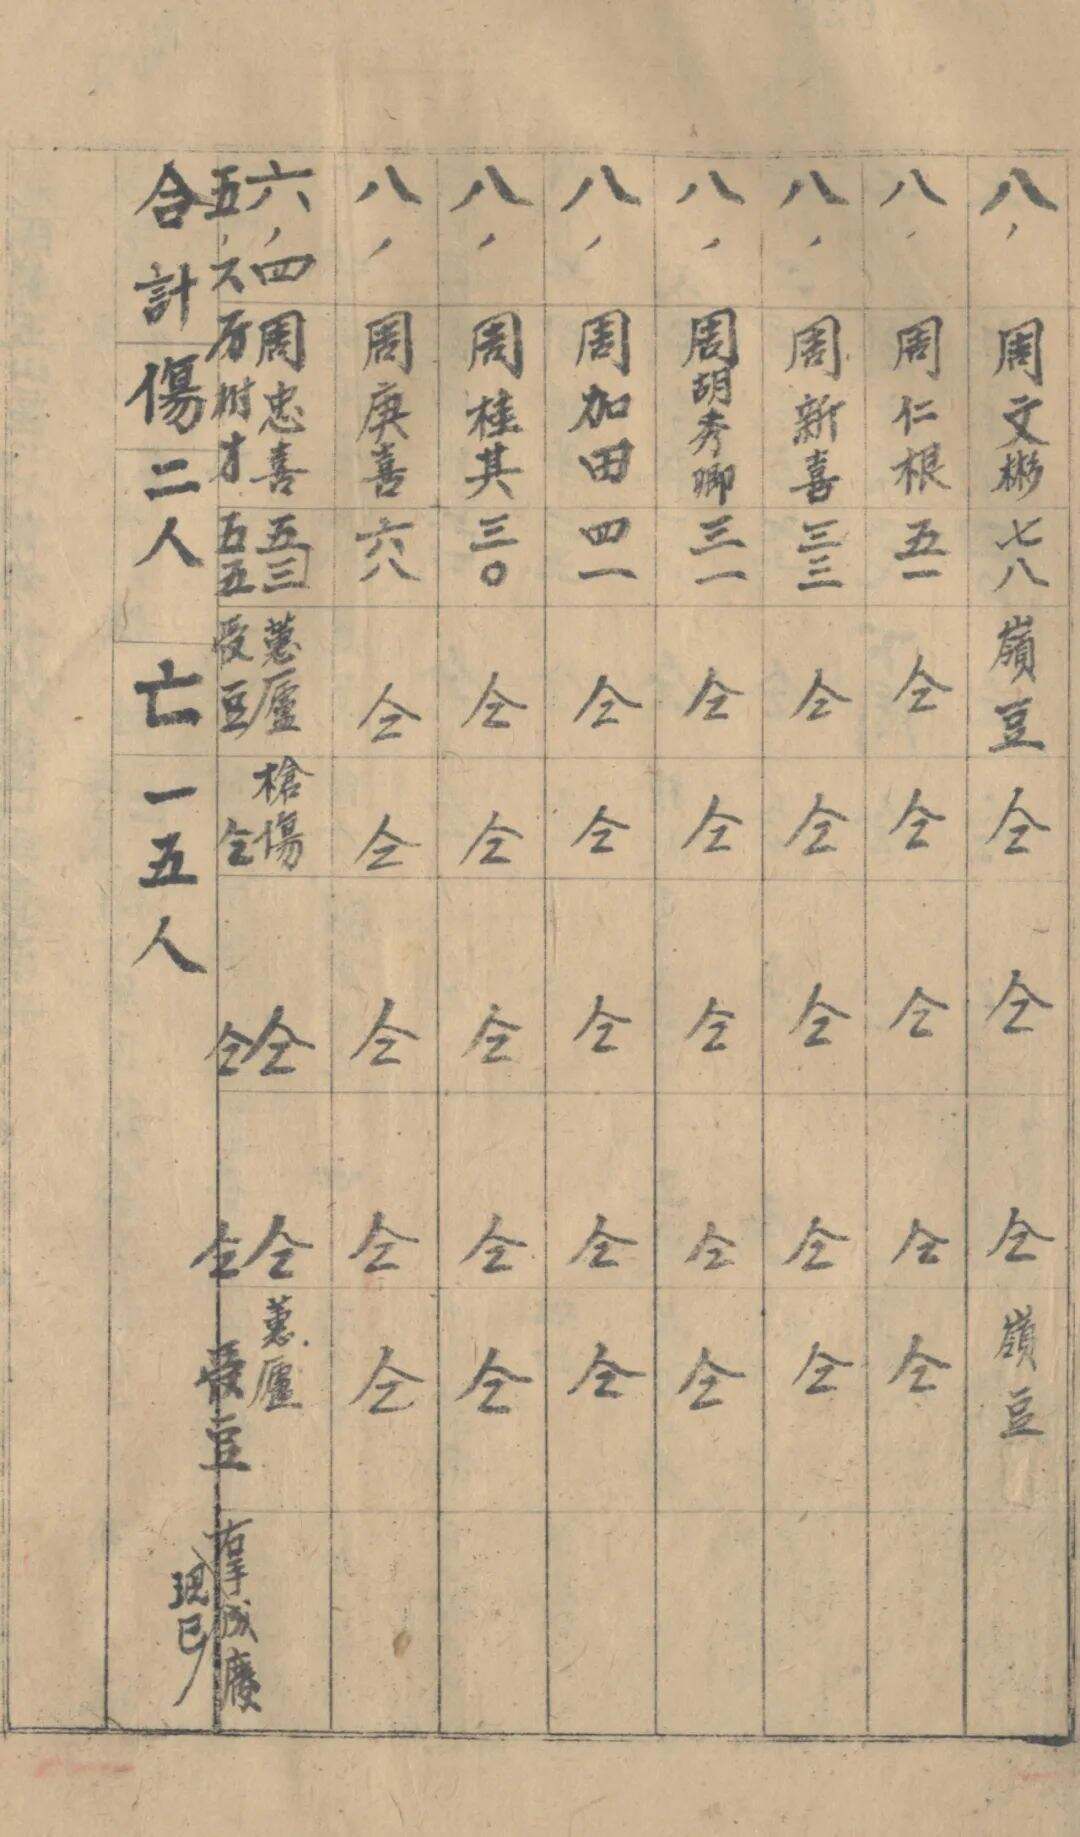 八、 周文彬 七八 嶺豆 仝 仝 仝 嶺豆
八、 周仁根 五一 仝 仝 仝 仝 仝
八、 周新喜 三三 仝 仝 仝 仝 仝
八、 周胡秀卿 三一 仝 仝 仝 仝 仝
八、 周加田 四一 仝 仝 仝 仝 仝
八、 周桂其 三〇 仝 仝 仝 仝 仝
八、 周庚喜 六八 仝 仝 仝 仝 仝
六、四 周忠喜 五三 蒽廬 槍傷 仝 仝 蒽廬
五、六 樹才 五五 受豆 仝 仝 仝 受豆 右掌成廢
現已
合計 傷二人 亡一五人